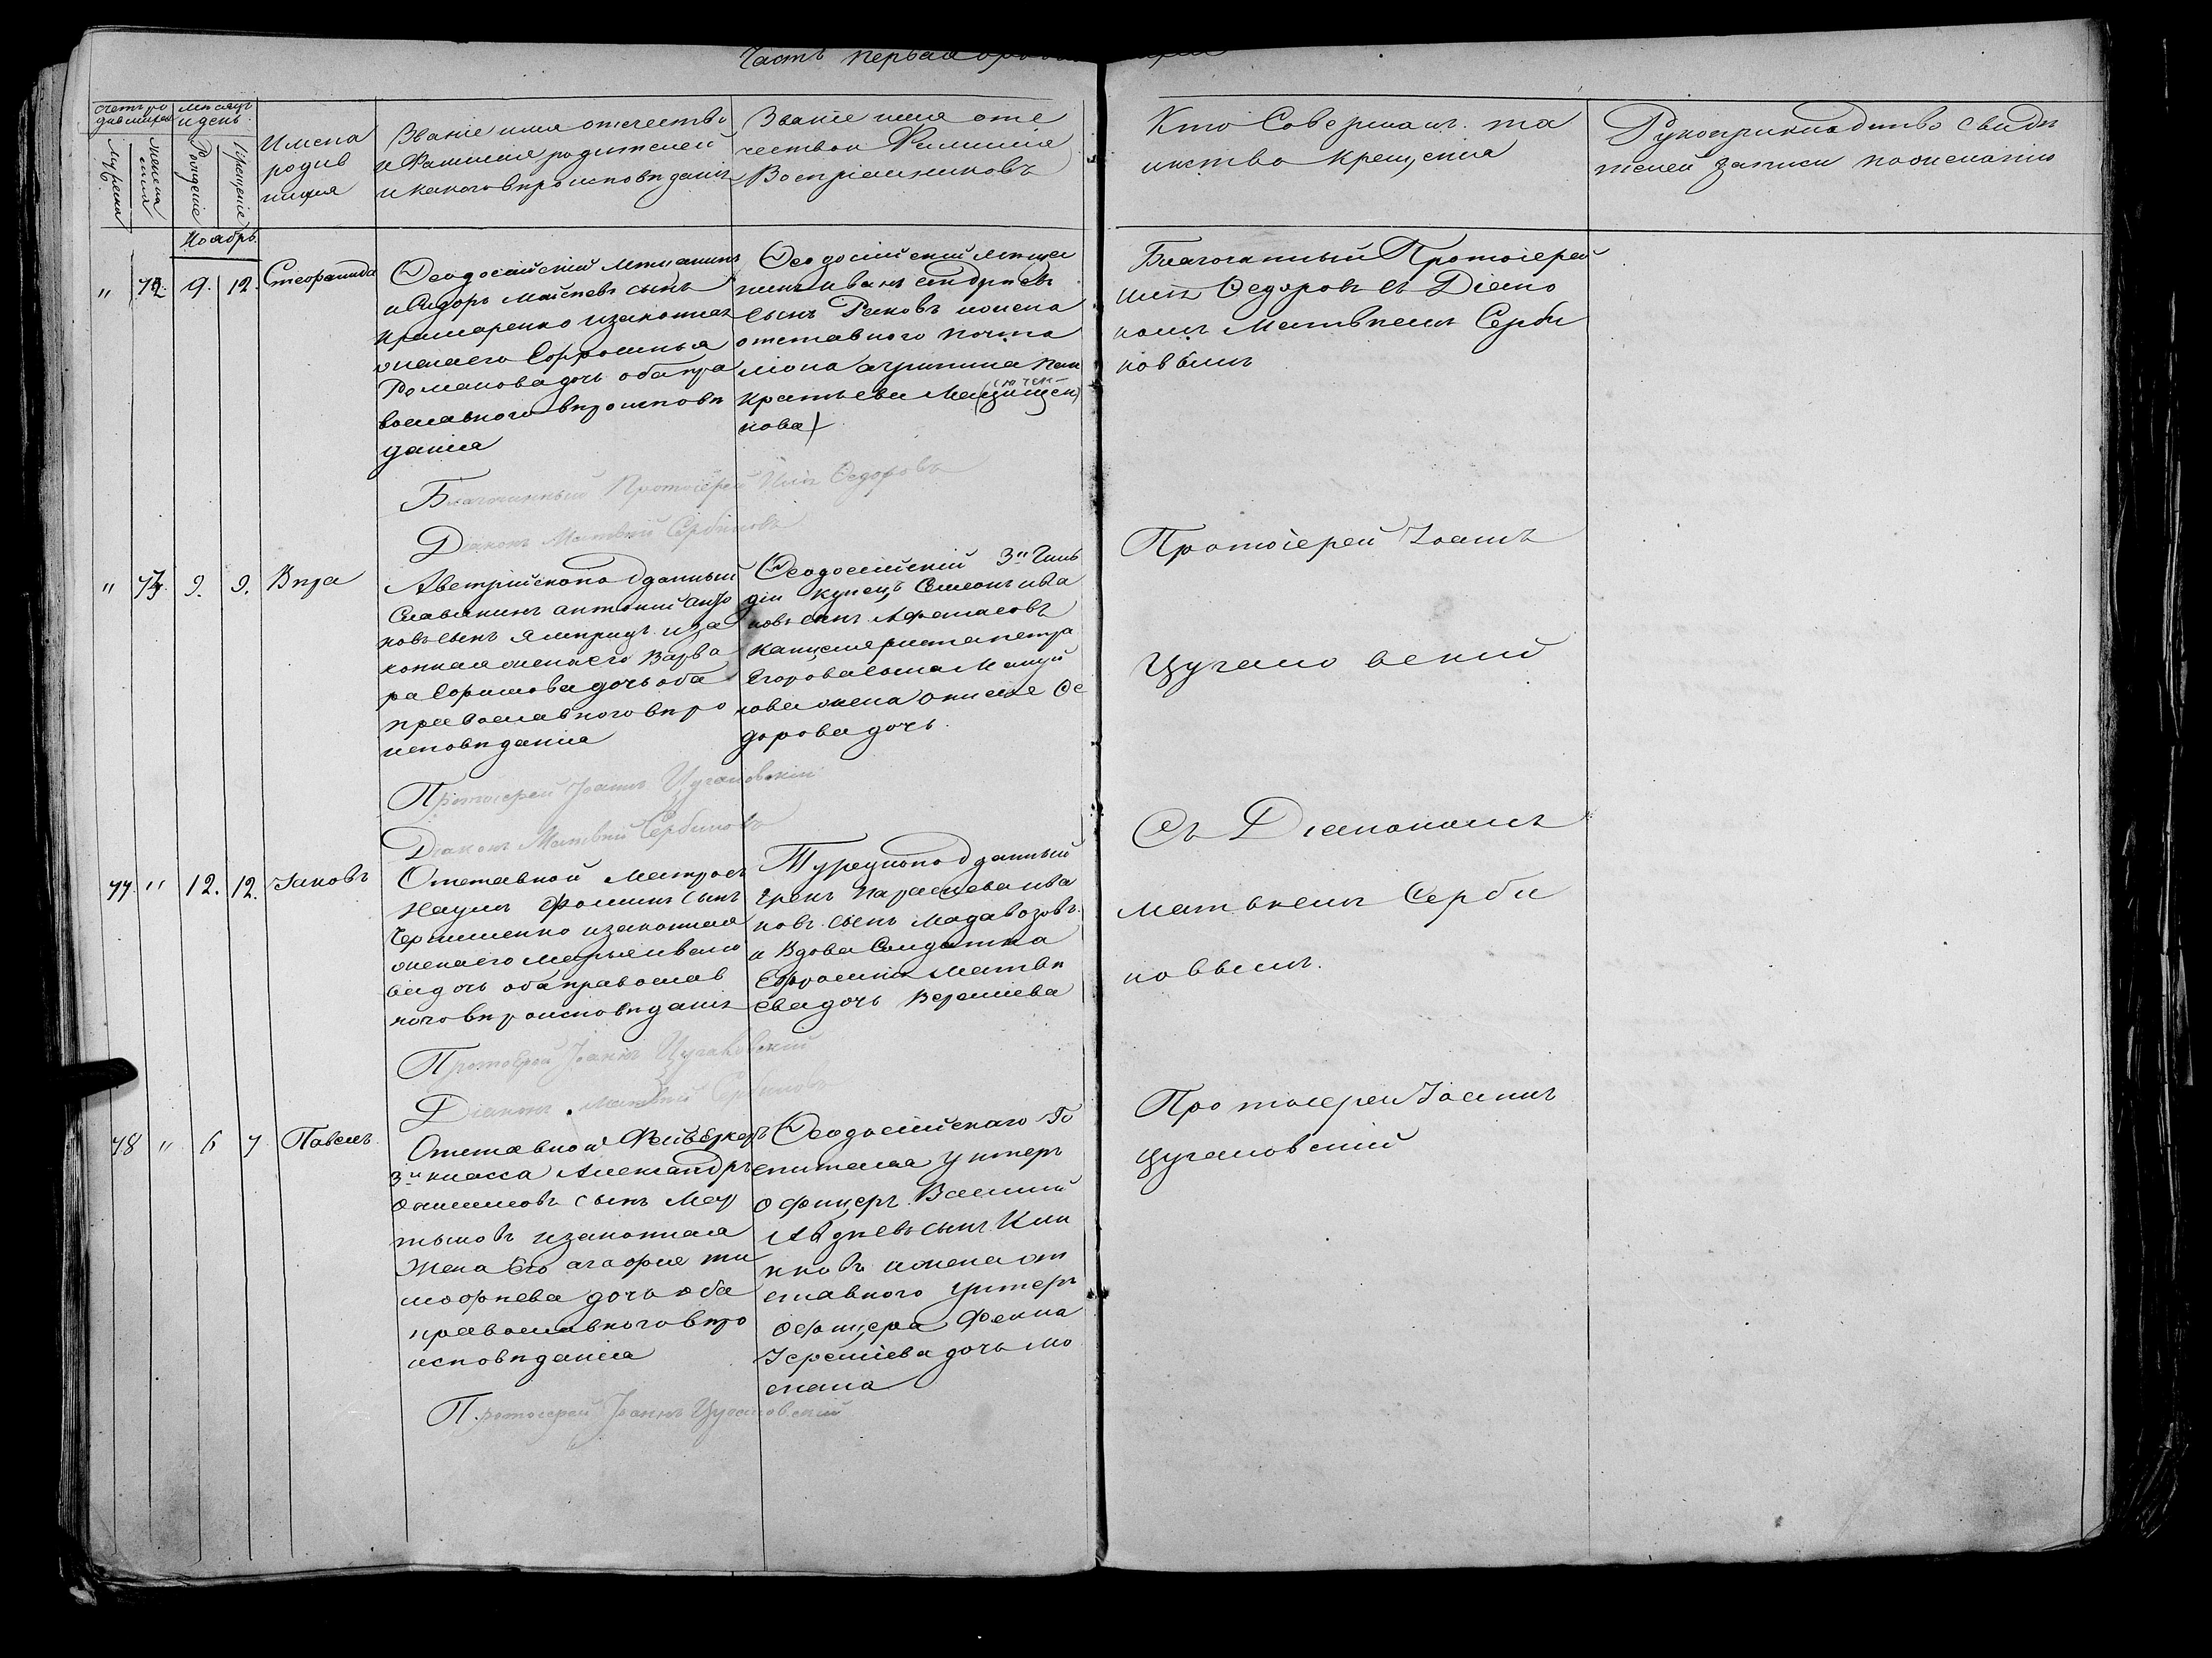 Часть первая о
Счетъ ро
дившихся
Мѣсяцъ
и день
Мужеска
женска
Рожденіе
Крещеніе
Имена
родив
шихся
Званіе имя отчество
и Фамилія родителей
и какого вѣроисповѣданія
Званіе имя оте
чество и Фамилія
Воспріемниковъ
Кто Совершалъ та
инство крещенія
Рукоприкладство свидѣ
телей записи по желанію
Ноябрь
" 72. 9. 12. Стефанида
Ѳеодосійскій мѣщанинъ
Исидоръ сынъ
Крамаренко и законная
жена его Евфросинья
Романова дочь оба пра
вославного вѣроисповѣ
данія
Ѳеодосійскій мѣща
нинъ Иванъ Андреевъ
сынъ Раковъ и жена
отставного почта
ліона Агрипина Пан
кратьева
нова)
Благочинный Протоіерей
Илія Ѳедоровъ съ Діако
номъ Матвѣемъ Серби
новымъ
Благочинный Протоіерей Илія Ѳедоровъ
Діаконъ Матвѣй Сербиновъ
" 73 9. 9. Вѣра
Австрійскоподданный
Славянинъ Антоній Анто
новъ сынъ и за
конная жена его Варва
ра дочь оба
православного вѣро
исповѣданія
Ѳеодосійскій 3й Гиль
діи купецъ Симеонъ Ива
новъ сынъ Афанасовъ
канцеляриста Петра
Егорова сына
жена Ѳе
дорова дочь.
Протоіерей Іоаннъ
Цугановскій
Протоіерей Іоаннъ Цугановскій
Діаконъ Матвѣй Сербиновъ
77. " 12. 12. Іаковъ
Отставной Матросъ
Наумъ Фоминъ сынъ
и законная
жена его Марья Ивано
ва дочь оба православ
ного вѣроисповѣданія
Турецкоподданный
Грекъ Параскева Ива
новъ сынъ Мадавозовъ
и Вдова Солдатка
Евфросинія Матвѣ
ева дочь
Съ Діакономъ
Матвѣемъ Серби
новымъ.
Протоіерей Іоаннъ Цугановскій
Діаконъ Матвѣй Сербиновъ
78 " 6 7 Павелъ
Отставной Фейверкеръ
3й класса Александръ
сынъ
и законная
Жена Его Агафія Ти
мофѣева дочь оба
православного вѣро
исповѣданія
Ѳеодосійскаго Го
спиталя унтеръ
офицеръ Василій
Авдѣевъ сынъ
и жена от
ставного унтеръ
офицера Фекла
дочь
Протоіерей Іоаннъ
Цугановскій
Протоіерей Іоаннъ Цугановскій